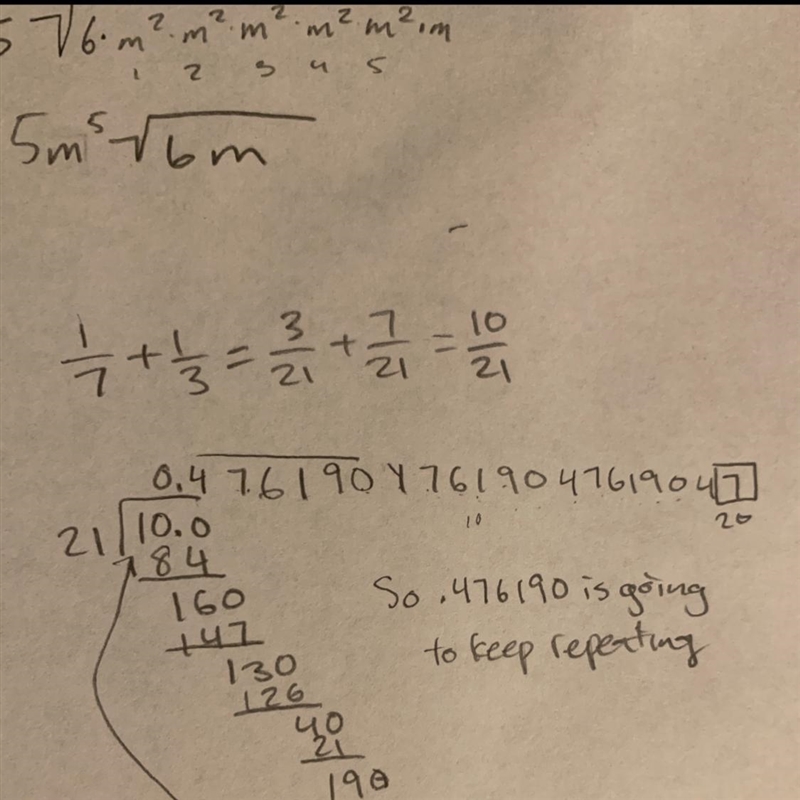 5 √6·m²·m²·m²·m²·m²·m
1 2 3 4 5
5m⁵√6m
1/7 + 1/3 = 3/21 + 7/21 = 10/21
0.47619047619047619047
10 20
21 10.0
84
160
147
130
126
40
21
190
So .476190 is going
to keep repeating